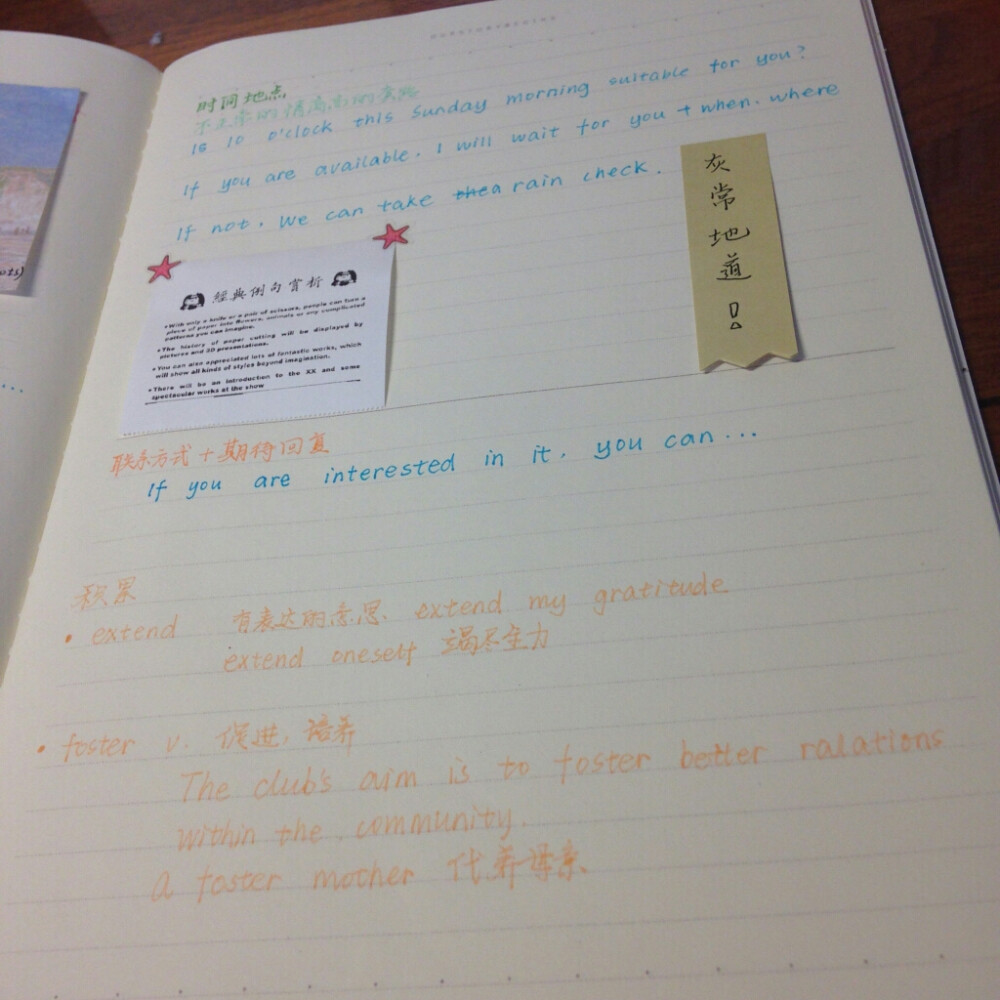 时间地点
Is 10 o'clock this Sunday morning suitable for you?
If you are available, I will wait for you + when. where
If not, We can take a rain check.
灰常地道!
經典例句賞析
• With only a knife or a pair of scissors, people can turn a
piece of paper into flowers, animals or any complicated
patterns you can imagine.
• The history of paper cutting will be displayed by
pictures and 3D presentations.
• You can also appreciated lots of fantastic works, which
will show all kinds of styles beyond imagination.
• There will be an introduction to the XX and some
spectacular works at the show
联系方式+期待回复
If you are interested in it, you can...
积累
• extend 有表达的意思. extend my gratitude
extend oneself 竭尽全力
• foster v. 促进, 培养
The club's aim is to foster better ralations
within the community.
a foster mother 代养母亲